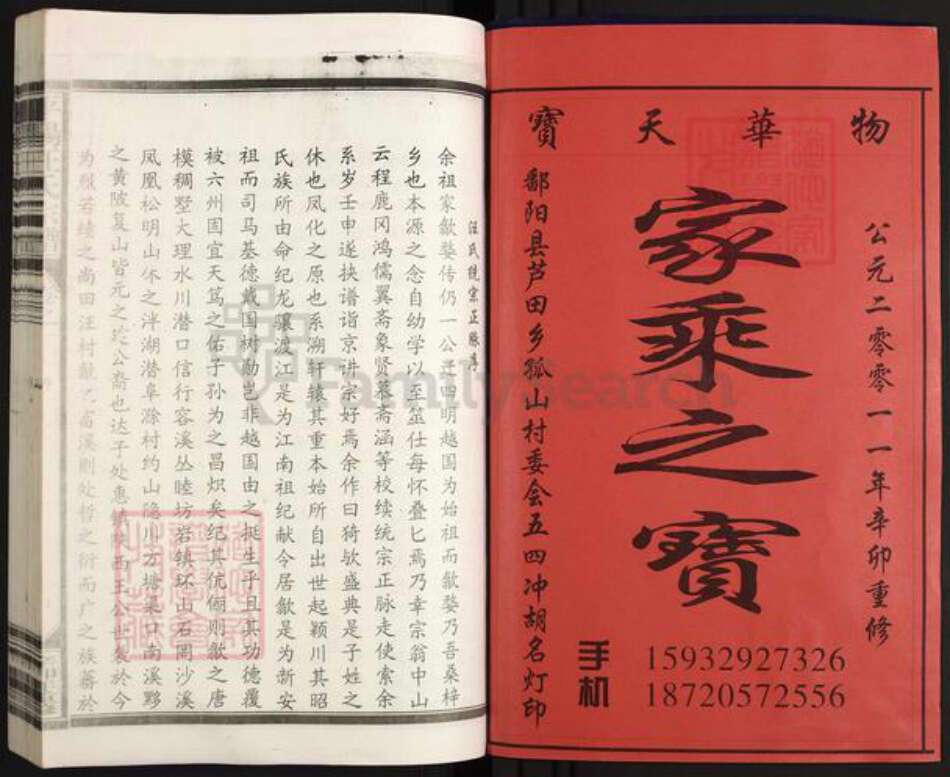 物華天寶
公元二零零一一年辛卯重修
家乘之寶
鄱阳县芦田乡狐山村委会五四冲胡名灯印
手机
15932927326
18720572556
汪氏统宗正脉序
余祖家歙婺传仍一公迁四明越国为始祖而歙婺乃吾桑梓
乡也本源之念自幼学以至筮仕每怀叠匕焉乃幸宗翁中山
云程鹿冈鸿儒翼斋象贤慕斋涵等校续统宗正脉走使索余
系岁壬申遂挟谱诣京讲宗好焉余作曰猗欤盛典是子姓之
休也凤化之原也系溯轩辕其重本始所自出世起颖川其昭
氏族所由命纪龙骧渡江是为江南祖纪献今居歙是为新安
祖而司马基德戴国树勋岂非越国由之挺生乎且其功德覆
被六州固宜天笃之佑子孙为之昌炽矣纪其伉俪则歙之唐
模稠墅大理水川潜口信行容溪丛睦坊岩镇环山石岡沙溪
凤凰松明山休之泮湖潜阜滁村约山隐川方塘杲口南溪黟
之黄陂复山皆元之公裔也达子处惠镇陕西王公世袭於今
为烈若绩之尚田汪村歙之富溪则处哲之衍而户之族蕃於
FamilySearch